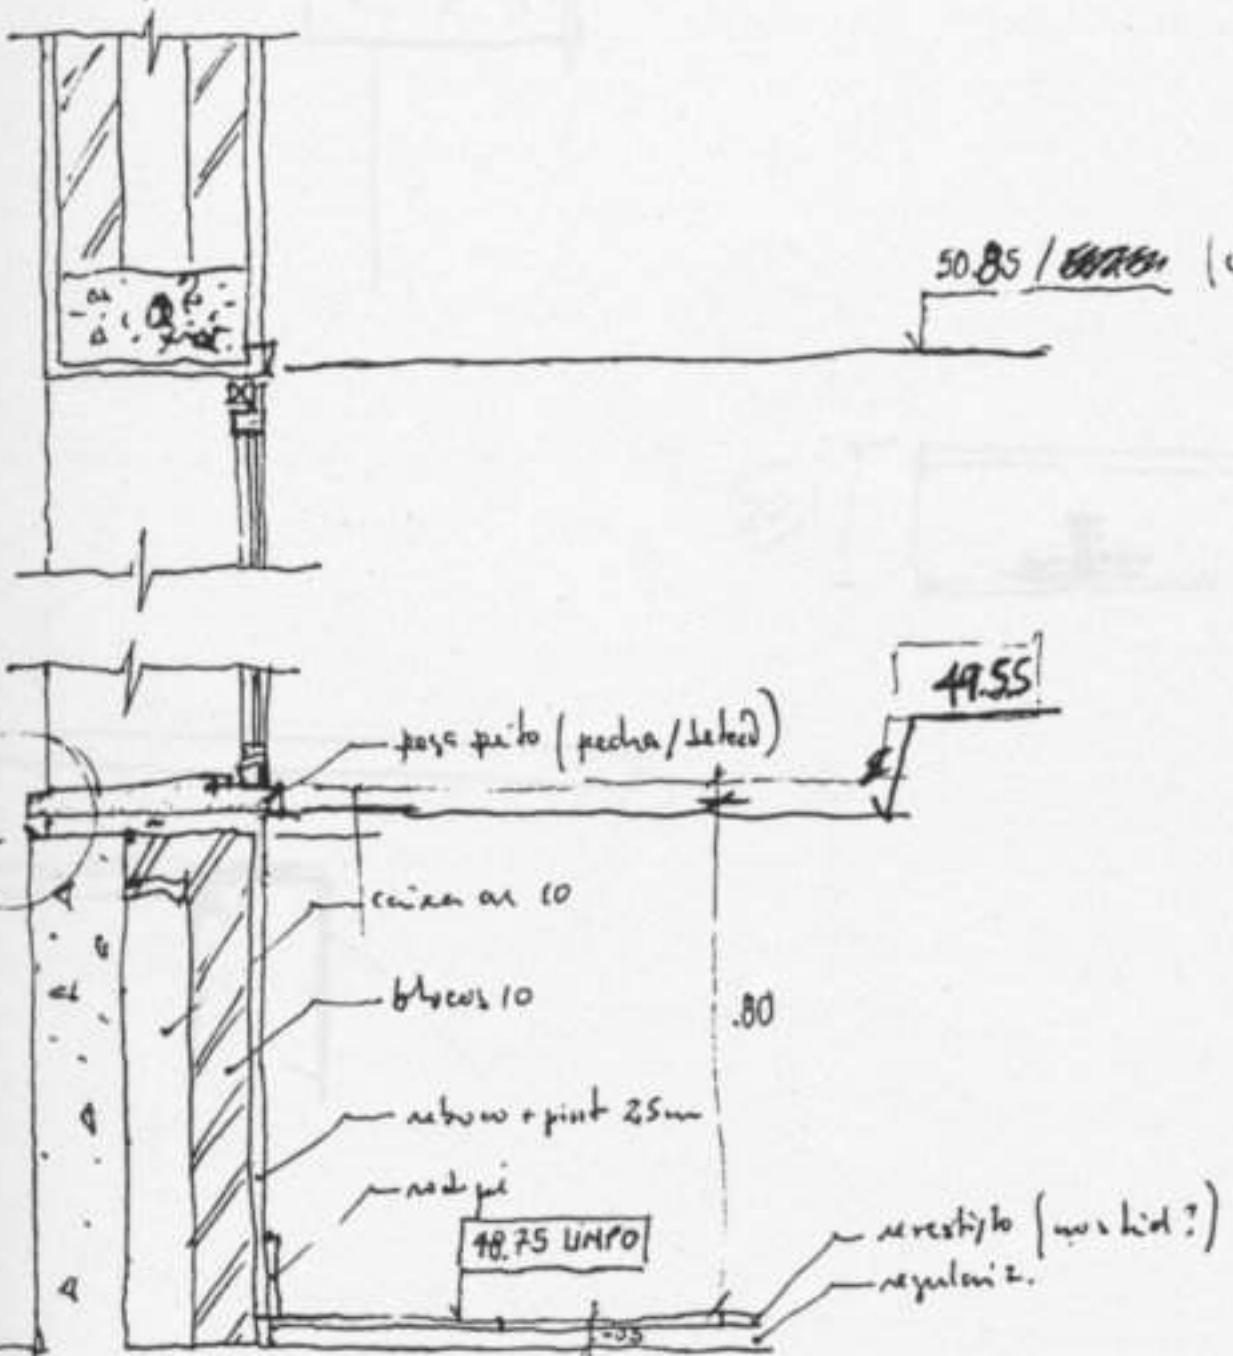 50.85 /
49.55
peito (pedra/
caixa ar 10
blocos 10
.80
reboco + pint 25mm
rodapé
48.75 LIMPO
revestigto (moskid ?)
regulariz.